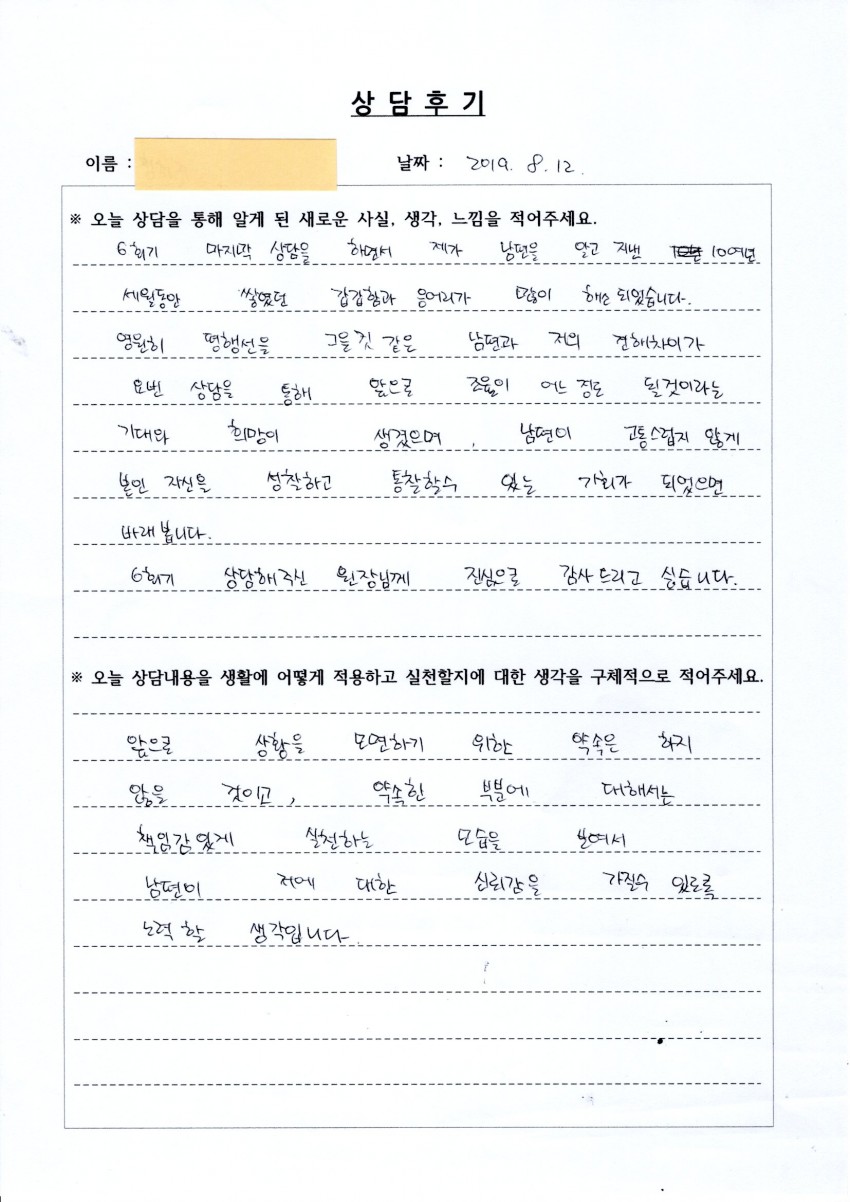 상 담 후 기
이름 :
날짜 : 2019. 8. 12.
※ 오늘 상담을 통해 알게 된 새로운 사실, 생각, 느낌을 적어주세요.
6회기 마지막 상담을 하면서 제가 남편을 알고 지낸 10여년
세월동안 쌓였던 갑갑함과 응어리가 많이 해소 되었습니다.
영원히 평행선을 그을것 같은 남편과 저의 견해차이가
요번 상담을 통해 앞으로 조율이 어느 정도 될것이라는
기대와 희망이 생겼으며, 남편이 고통스럽지 않게
본인 자신을 성찰하고 통찰할수 있는 기회가 되었으면
바래 봅니다.
6회기 상담해주신 원장님께 진심으로 감사드리고 싶습니다.
※ 오늘 상담내용을 생활에 어떻게 적용하고 실천할지에 대한 생각을 구체적으로 적어주세요.
앞으로 상황을 모면하기 위한 약속은 하지
않을 것이고, 약속한 부분에 대해서는
책임감있게 실천하는 모습을 보여서
남편이 저에 대한 신뢰감을 가질수 있도록
노력 할 생각입니다.